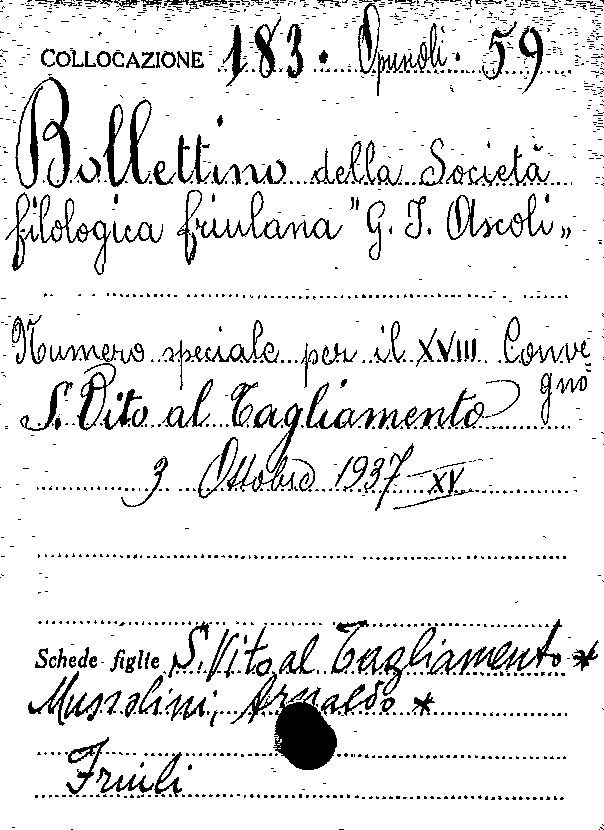 COLLOCAZIONE 183. Opuscoli. 59
Bollettino della Società
filologica friulana "G. I. Ascoli"
Numero speciale per il XVIII Conve
gno
S. Vito al Tagliamento
3 Ottobre 1937-XV
Schede figlie S. Vito al Tagliamento *
Mussolini, Arnaldo *
Friuli